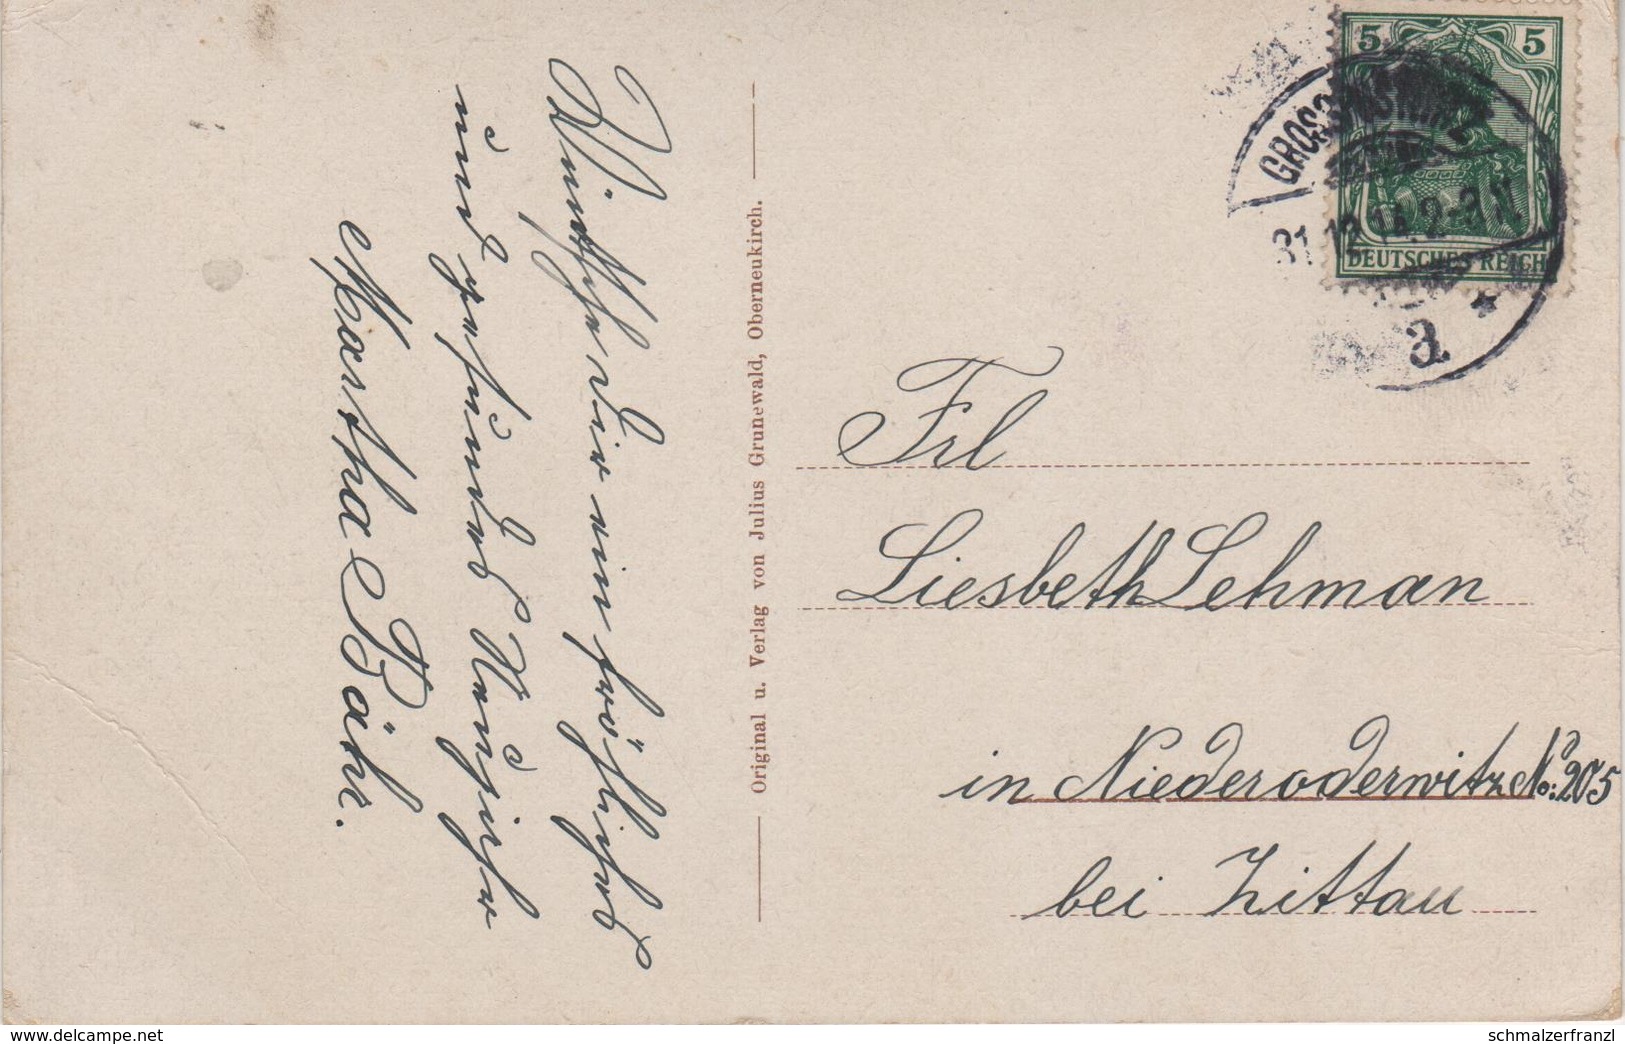 Wünsche dir ein fröhliches
und gesundes Neujahr
Martha Bähr.
Original u. Verlag von Julius Grunewald, Oberneukirch.
5 5
DEUTSCHES REICH
31.12.14. 2-3 N
a
Frl
Liesbeth Lehman
in Niederoderwitz No: 205
bei Zittau
www.delcampe.net
schmalzerfranzl